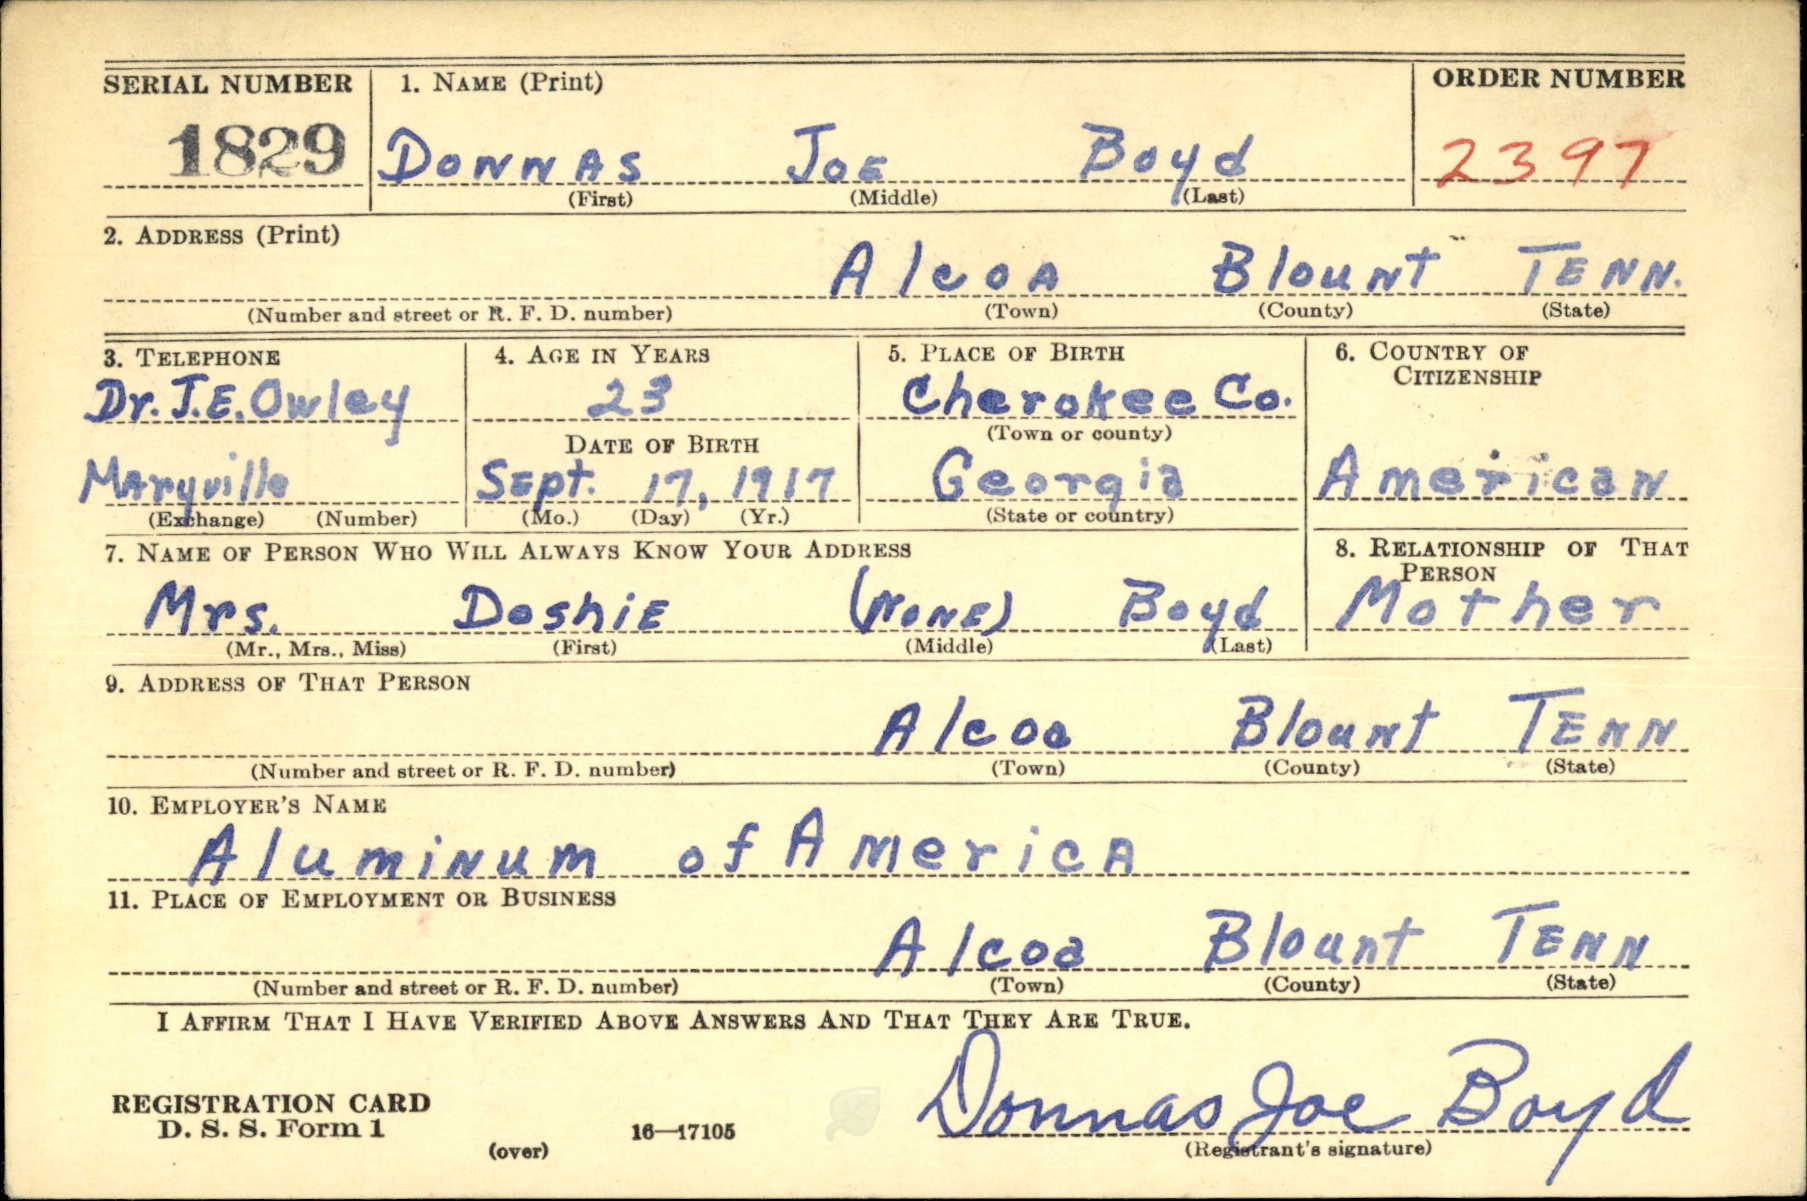 SERIAL NUMBER 1. NAME (Print) ORDER NUMBER
1829 DONNAS JOE Boyd 2397
(First) (Middle) (Last)
2. ADDRESS (Print)
Alcoa Blount TENN.
(Number and street or R. F. D. number) (Town) (County) (State)
3. TELEPHONE 4. AGE IN YEARS 5. PLACE OF BIRTH 6. COUNTRY OF
CITIZENSHIP
Dr. J.E. Owley 23 Cherokee Co.
(Town or county)
DATE OF BIRTH
Maryville Sept. 17, 1917 Georgia American
(Exchange) (Number) (Mo.) (Day) (Yr.) (State or country)
7. NAME OF PERSON WHO WILL ALWAYS KNOW YOUR ADDRESS 8. RELATIONSHIP OF THAT
PERSON
Mrs. Doshie (NONE) Boyd Mother
(Mr., Mrs., Miss) (First) (Middle) (Last)
9. ADDRESS OF THAT PERSON
Alcoa Blount TENN
(Number and street or R. F. D. number) (Town) (County) (State)
10. EMPLOYER'S NAME
Aluminum of America
11. PLACE OF EMPLOYMENT OR BUSINESS
Alcoa Blount TENN
(Number and street or R. F. D. number) (Town) (County) (State)
I AFFIRM THAT I HAVE VERIFIED ABOVE ANSWERS AND THAT THEY ARE TRUE.
Donnas Joe Boyd
REGISTRATION CARD
D. S. S. Form 1
(over) 16—17105 (Registrant's signature)